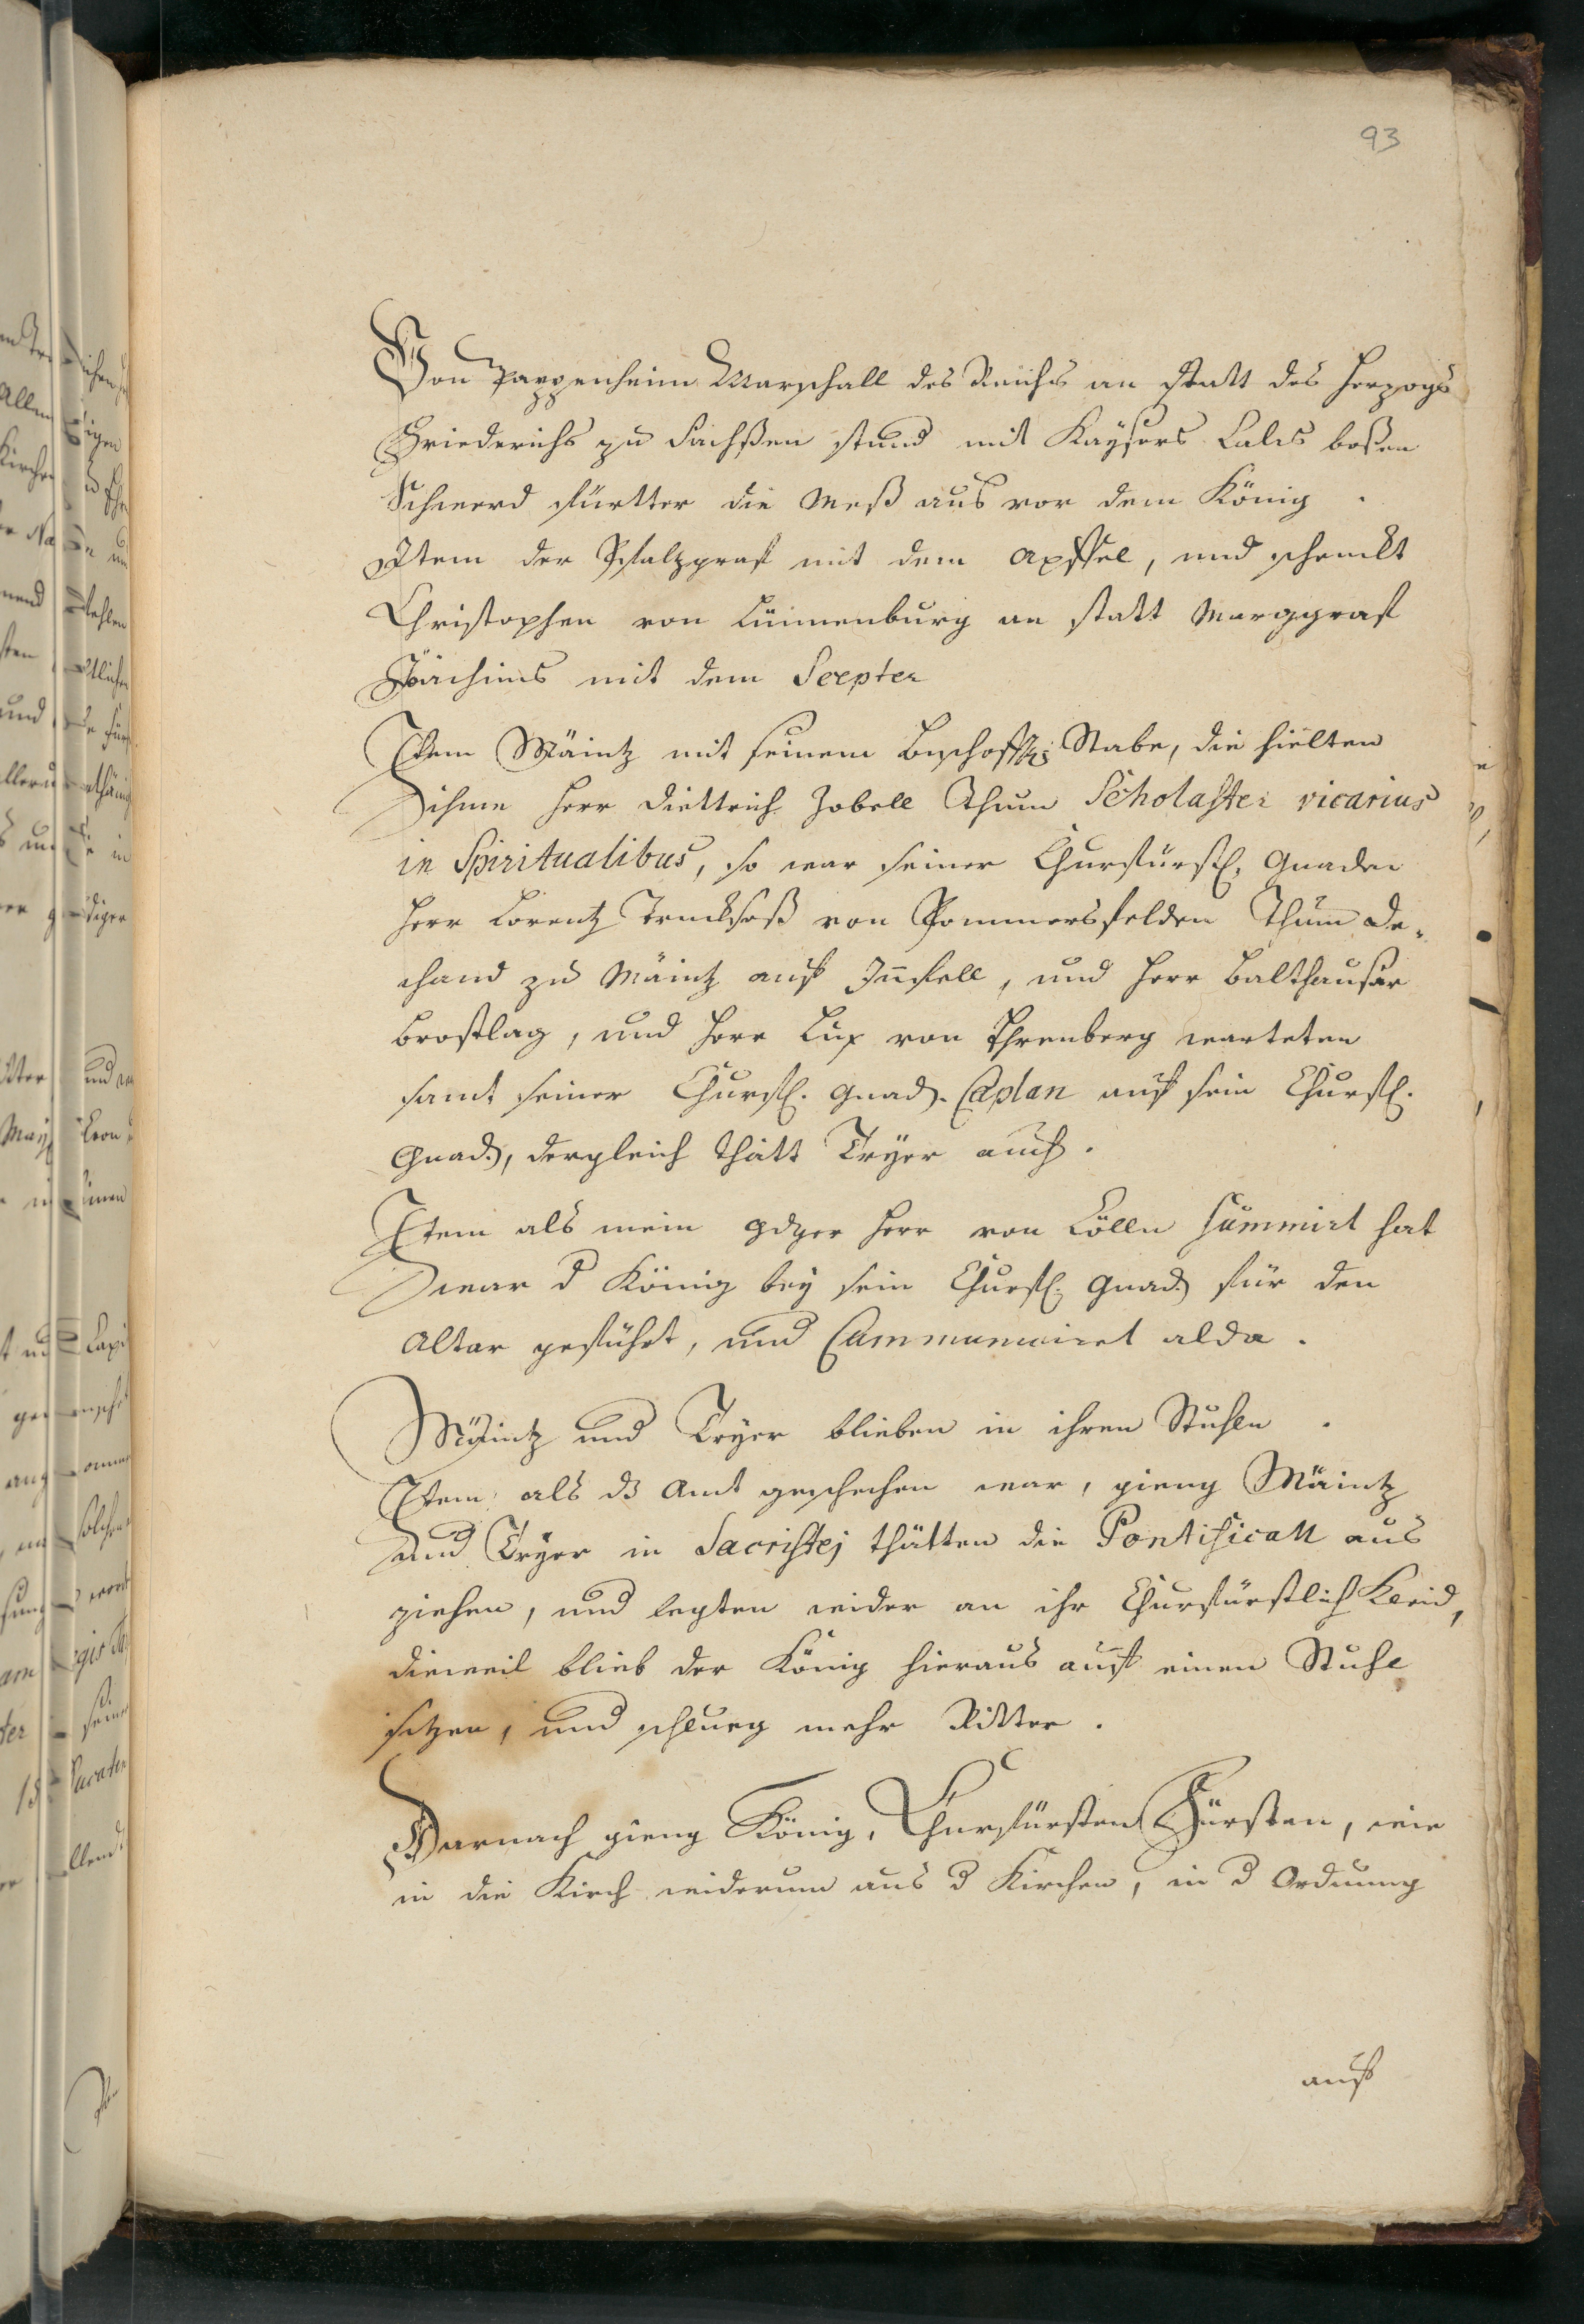 93
Von Pappenheim Marschall des Reichs an statt des Herzogs
Friederichs zu Sachßen stund mit Kaysers Calis boßen
Schwerd fürtter die Meß aus vor dem König.
Item der Pfalzgraf mit dem Apffel, und schenckt
Christophen von Lünnenburg an statt Marggraf
Joachims mit dem Scepter
Item Mäintz mit seinem Bischoffs Stabe, die hielten
ihme Herr Diettrich Zobell Thum Scholaster vicarius
in Spiritualibus, so war seiner Churfürstl. Gnaden
Herr Lorentz Trucksaß von Pommersfelden Thum De-
chand zu Mäintz auf Innfell, und Herr Balthausar
Brostlag, und Herr Lux von Ehrenberg warteten
samt seiner Churfl. Gnad. Caplan auf sein Churfl.
Gnad., dergleich thätt Tryer auch.
Item als mein gdger Herr von Cölln summirt hat
war d König bey sein Churfl. Gnad. für den
Altar geführt, und Communiciret alda.
Mäintz und Tryer blieben in ihren Stuhln.
Item als dz Amt geschehen war, gieng Mäintz
und Tryer in Sacristej thätten die Pontificall aus
ziehen, und legten wider an ihr Churfürstlich Kleid,
dieweil blieb der König hieraus auf einen Stuhl
sitzen, und schlueg mehr Ritter.
Darnach gieng König, Churfürsten Fürsten, wie
in die Kirch widerum aus d Kirchen, in d Ordnung
auf